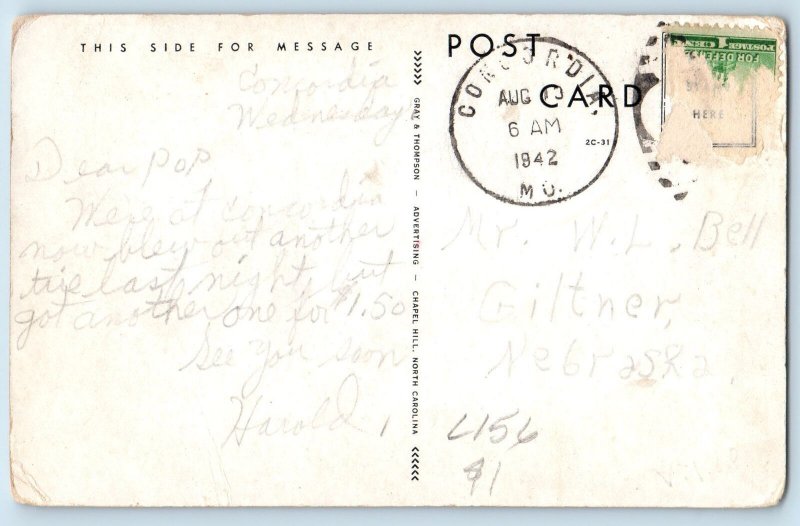 THIS SIDE FOR MESSAGE
Concordia
Wednesday
Dear Pop,
We're at Concordia
now blew out another
tire last night, but
got another one for $1.50
See You soon
Harold
GRAY & THOMPSON — ADVERTISING — CHAPEL HILL, NORTH CAROLINA
POST CARD
CONCORDIA,
AUG 13
6 AM
1942
MO.
2C-31
1 CENT 1
POSTAGE
FOR DEFENSE
HERE
Mr. W. L. Bell
Giltner,
Nebraska.
L156
$1